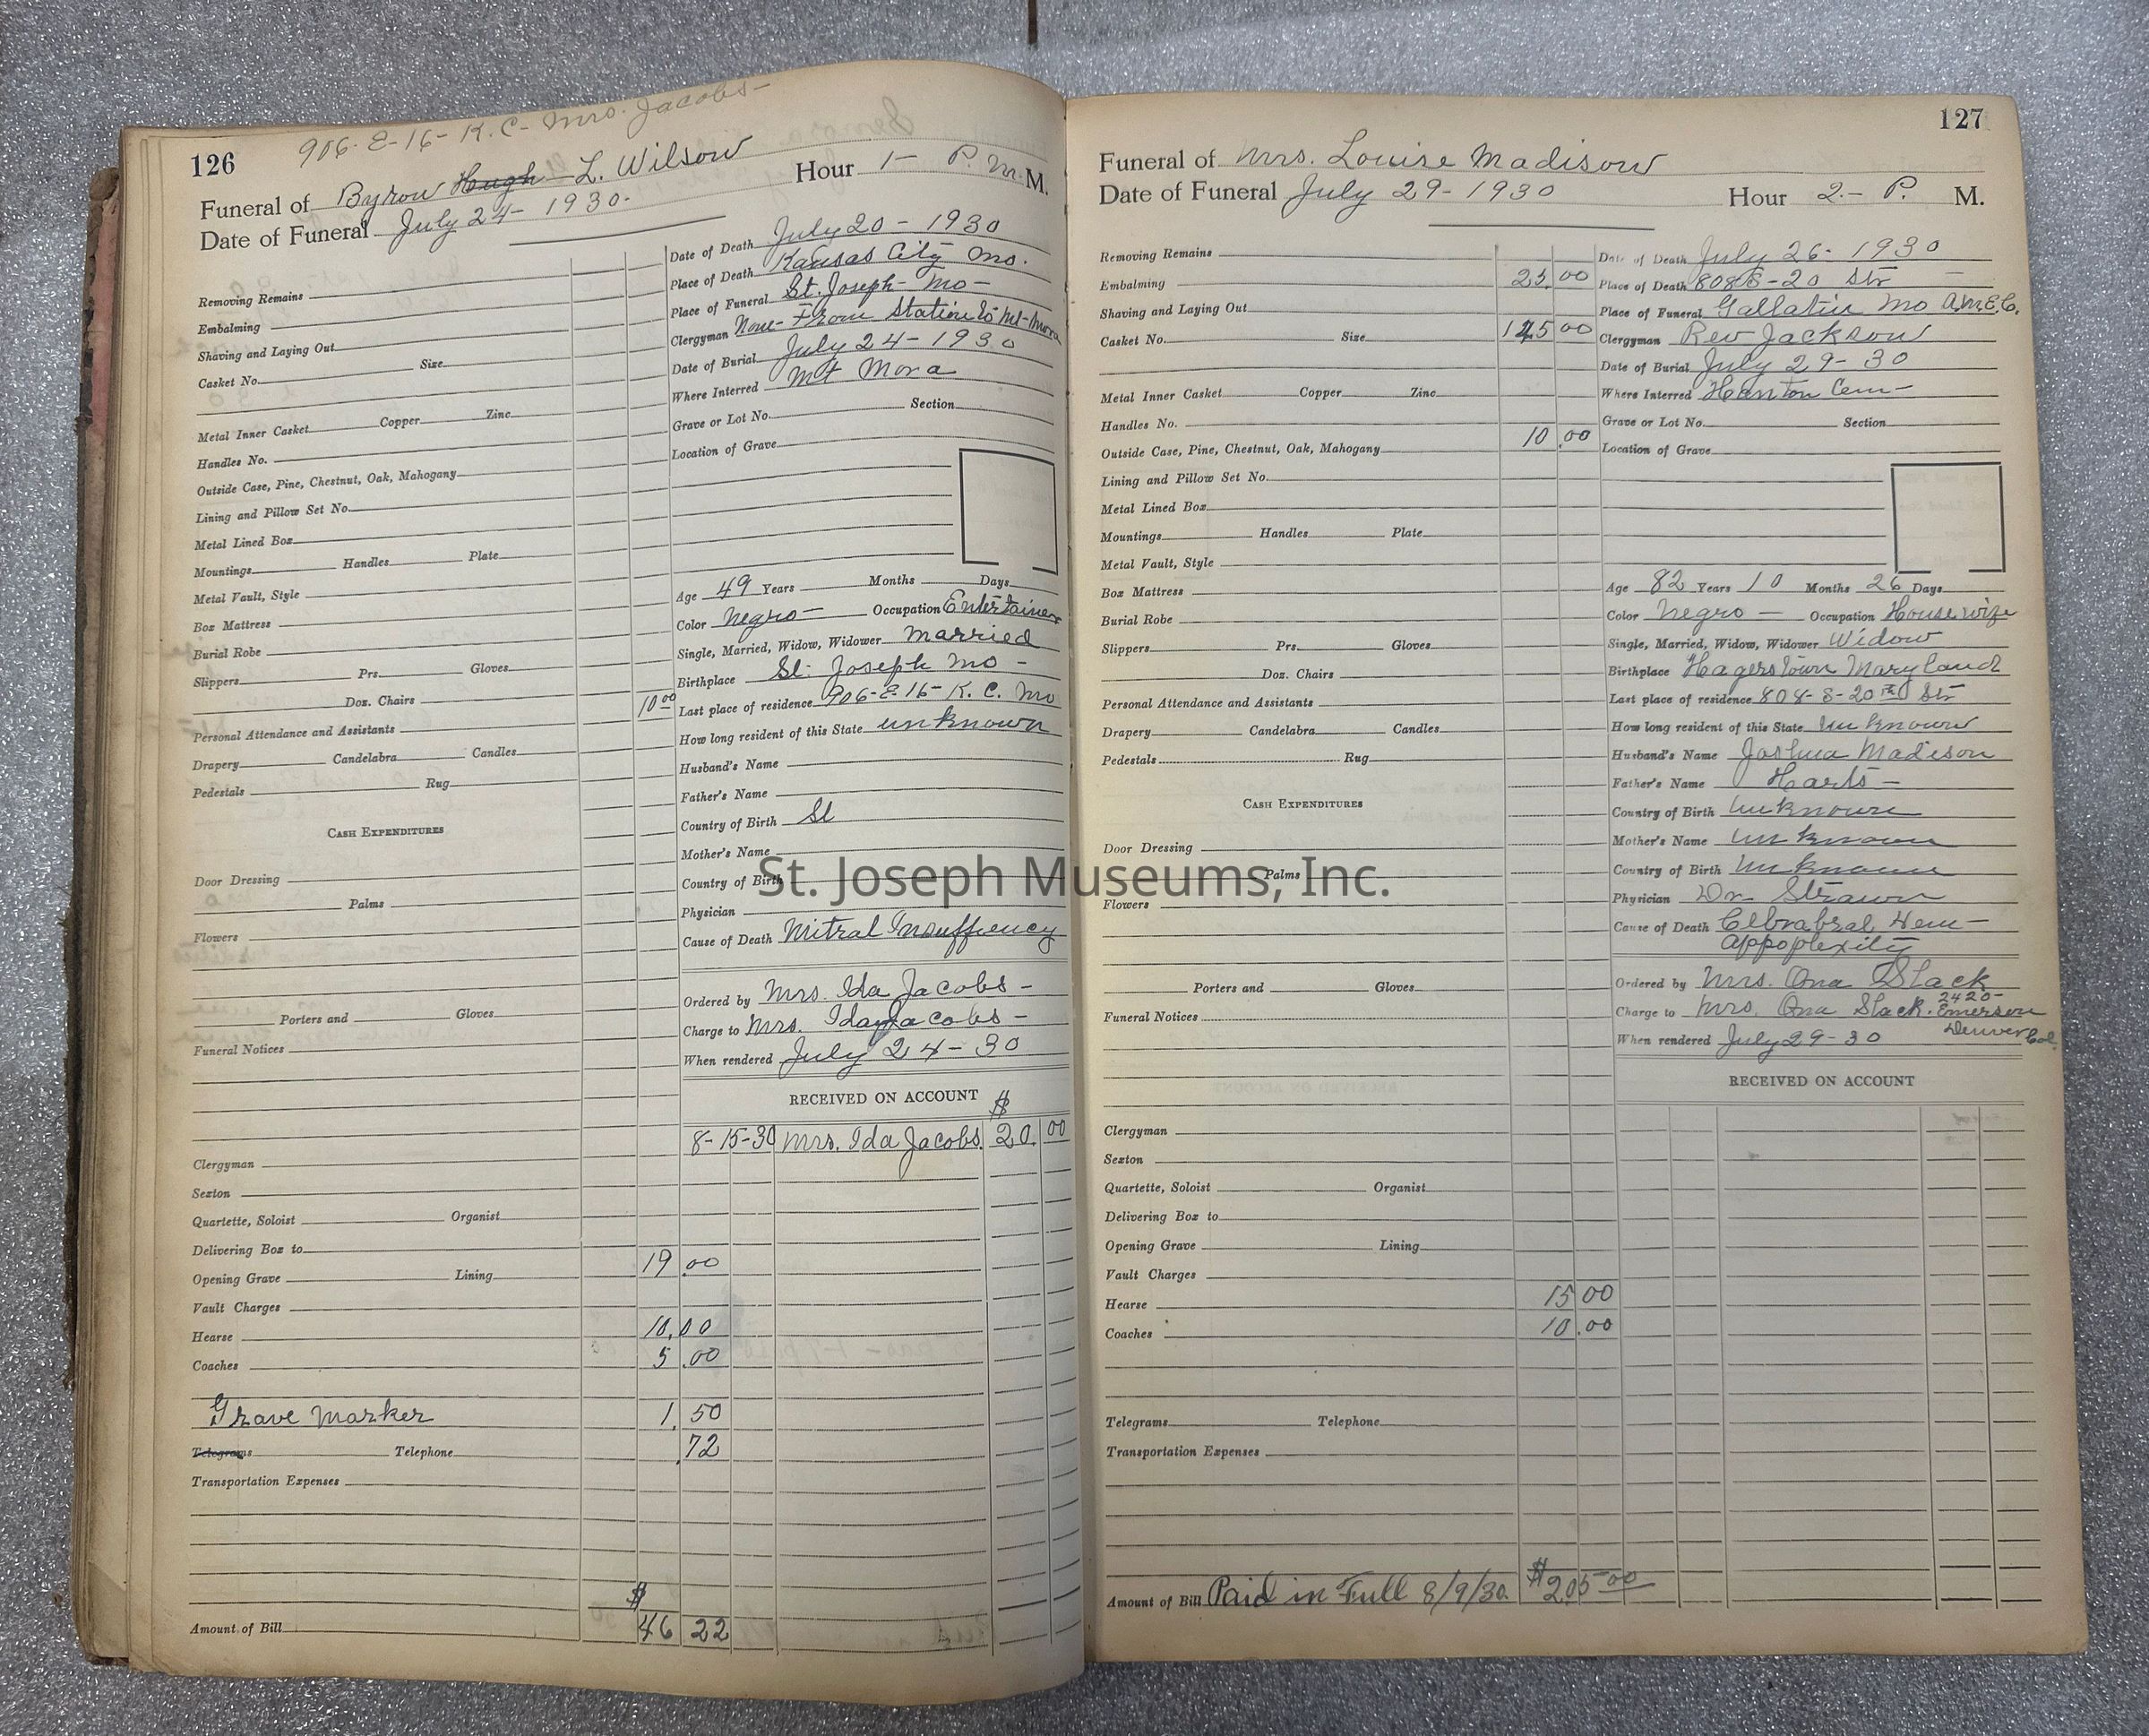 906-E-16-K.C- Mrs. Jacobs-
126
Funeral of Byron Hugh L. Wilson Hour 1- P.M. M.
Date of Funeral July 24- 1930.
Removing Remains
Embalming
Shaving and Laying Out
Casket No. Size
Metal Inner Casket Copper Zinc
Handles No.
Outside Case, Pine, Chestnut, Oak, Mahogany
Lining and Pillow Set No.
Metal Lined Box
Mountings Handles Plate
Metal Vault, Style
Box Mattress
Burial Robe
Slippers Prs. Gloves
Doz. Chairs 10 00
Personal Attendance and Assistants
Drapery Candelabra Candles
Pedestals Rug
CASH EXPENDITURES
Door Dressing
Palms
Flowers
Porters and Gloves
Funeral Notices
Clergyman
Sexton
Quartette, Soloist Organist
Delivering Box to
Opening Grave Lining 19 00
Vault Charges
Hearse 10.00
Coaches 5.00
Grave Marker 1.50
Telegrams Telephone .72
Transportation Expenses
$
Amount of Bill 46 22
Date of Death July 20 - 1930
Place of Death Kansas City Mo.
Place of Funeral St. Joseph- Mo-
Clergyman None- From Station to Mt-Mora
Date of Burial July 24-1930
Where Interred Mt Mora
Grave or Lot No. Section
Location of Grave
Age 49 Years Months Days
Color Negro- Occupation Entertainer
Single, Married, Widow, Widower Married
Birthplace St. Joseph Mo -
Last place of residence 906-E-16- K. C. Mo
How long resident of this State unknown
Husband's Name
Father's Name
Country of Birth St
Mother's Name
Country of Birth
Physician
Cause of Death Mitral Insuffiency
Ordered by Mrs. Ida Jacobs-
Charge to Mrs. Ida Jacobs-
When rendered July 24-30
RECEIVED ON ACCOUNT
$
8-15-30 Mrs. Ida Jacobs. 20.00
127
Funeral of Mrs. Louise Madison
Date of Funeral July 29-1930 Hour 2- P. M.
Removing Remains
Embalming 25.00
Shaving and Laying Out
Casket No. Size 145 00
Metal Inner Casket Copper Zinc
Handles No.
Outside Case, Pine, Chestnut, Oak, Mahogany 10.00
Lining and Pillow Set No.
Metal Lined Box
Mountings Handles Plate
Metal Vault, Style
Box Mattress
Burial Robe
Slippers Prs. Gloves
Doz. Chairs
Personal Attendance and Assistants
Drapery Candelabra Candles
Pedestals Rug
CASH EXPENDITURES
Door Dressing
Palms
Flowers
Porters and Gloves
Funeral Notices
Clergyman
Sexton
Quartette, Soloist Organist
Delivering Box to
Opening Grave Lining
Vault Charges
Hearse 15 00
Coaches 10.00
Telegrams Telephone
Transportation Expenses
Amount of Bill Paid in Full 8/9/30. $205.00
Date of Death July 26-1930
Place of Death 808 S-20 Str
Place of Funeral Gallatin Mo A.M.E.C.
Clergyman Rev Jackson
Date of Burial July 29-30
Where Interred Cem-
Grave or Lot No. Section
Location of Grave
Age 82 Years 10 Months 26 Days
Color Negro - Occupation Housewife
Single, Married, Widow, Widower Widow
Birthplace Hagerstown Maryland
Last place of residence 808-S-20th Str
How long resident of this State Unknown
Husband's Name Joshua Madison
Father's Name Harts-
Country of Birth Unknown
Mother's Name Unknown
Country of Birth Unknown
Physician Dr. Strawn
Cause of Death Hem-
Appoplexity
Ordered by Mrs. Ona Slack
Charge to Mrs. Ona Slack. 2420- Emerson
When rendered July 29-30 Denver Col.
RECEIVED ON ACCOUNT
St. Joseph Museums, Inc.